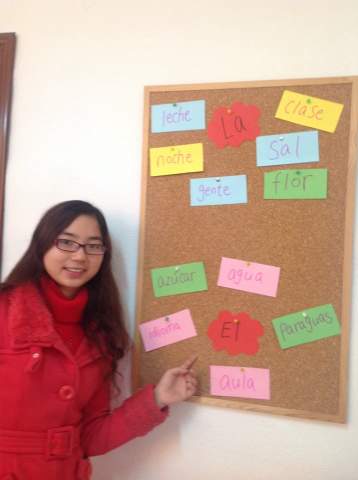 leche
La
clase
noche
sal
gente
flor
azúcar
agua
idioma
El
paraguas
aula